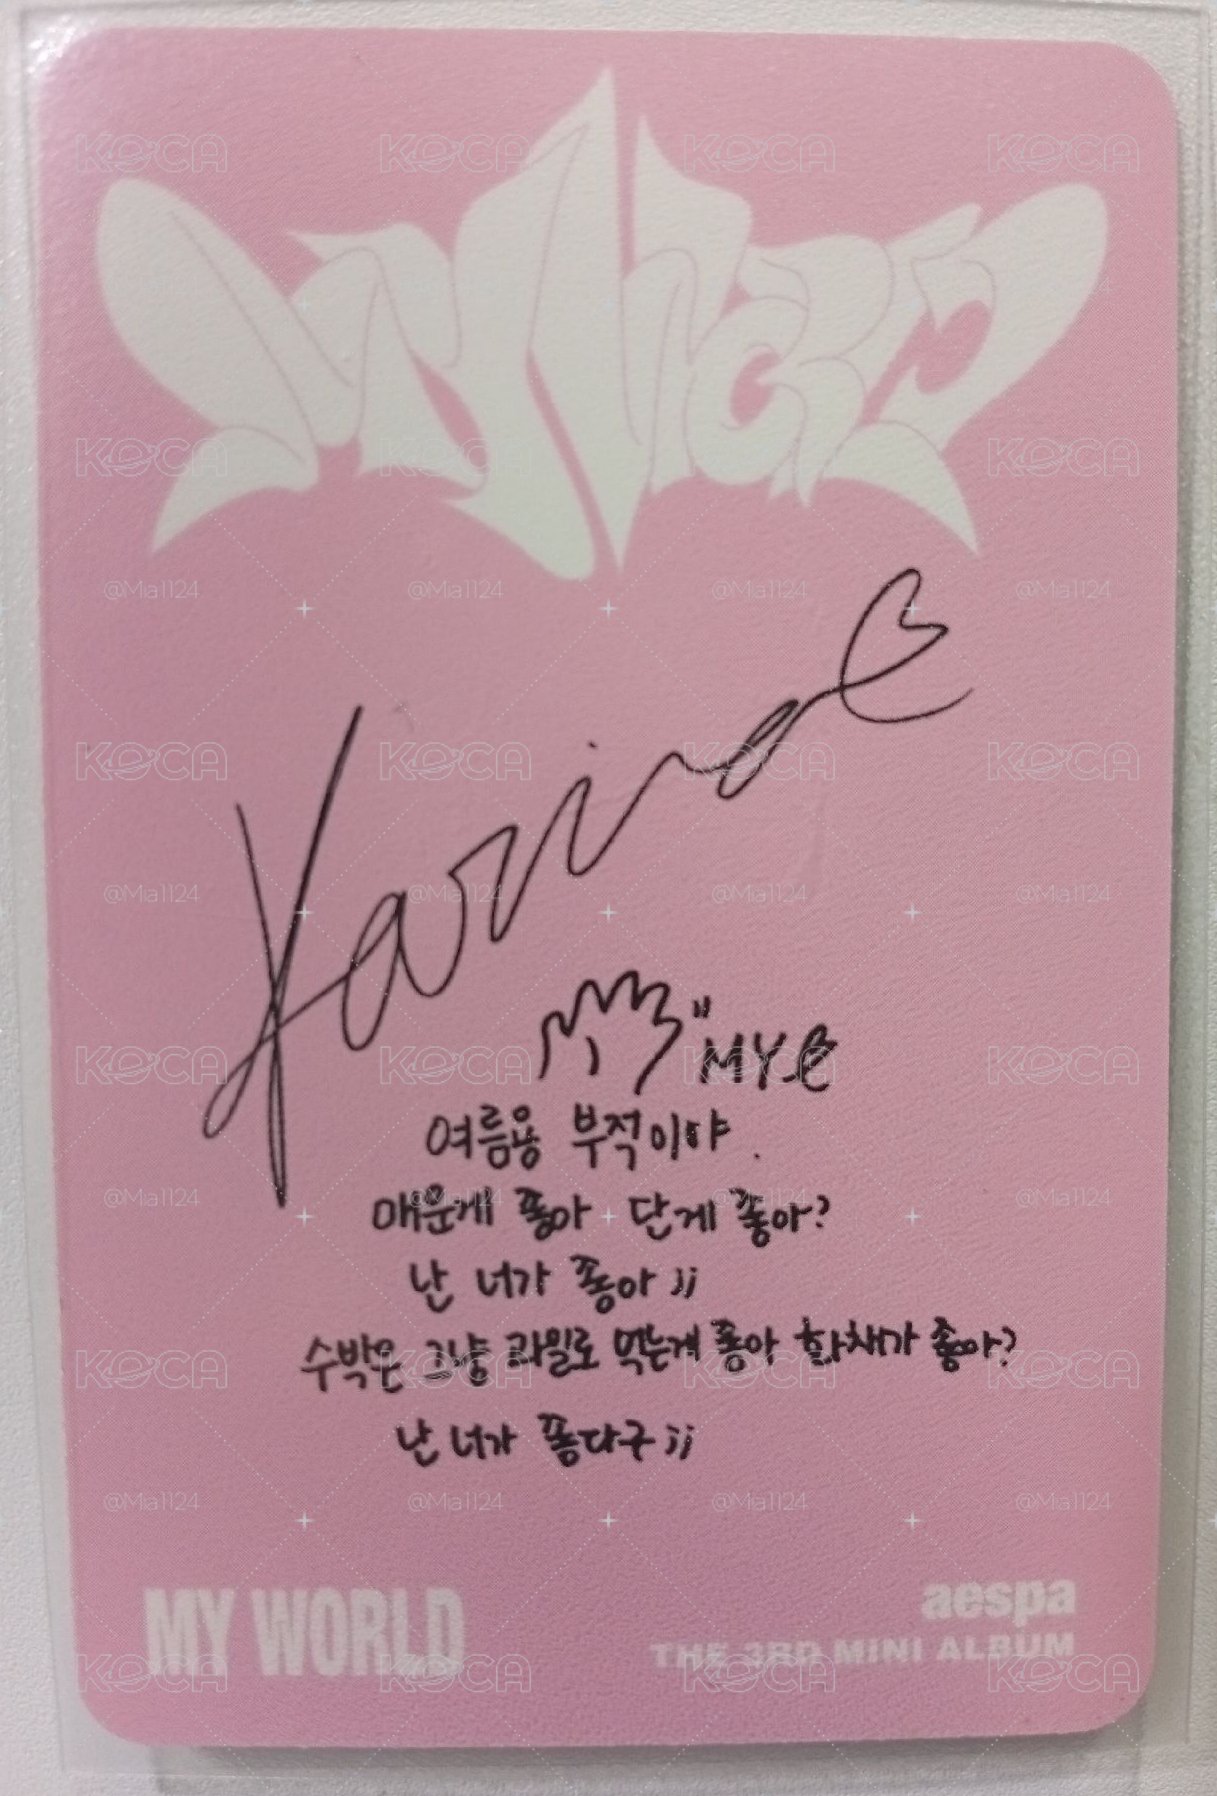 MY WORLD
Karina
"MY
여름용 부적이야.
매운게 좋아 단게 좋아?
난 너가 좋아 ;;
수박은 그냥 과일로 먹는게 좋아 화채가 좋아?
난 너가 좋다구 ;;
MY WORLD
aespa
THE 3RD MINI ALBUM
KOCA
@Mia1124